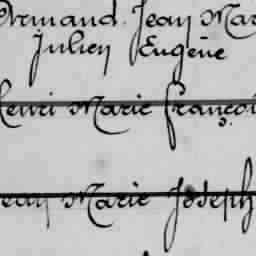 Armand. Jean Mar
Julien Eugène
Henri Marie Françoi
Jean Marie Joseph